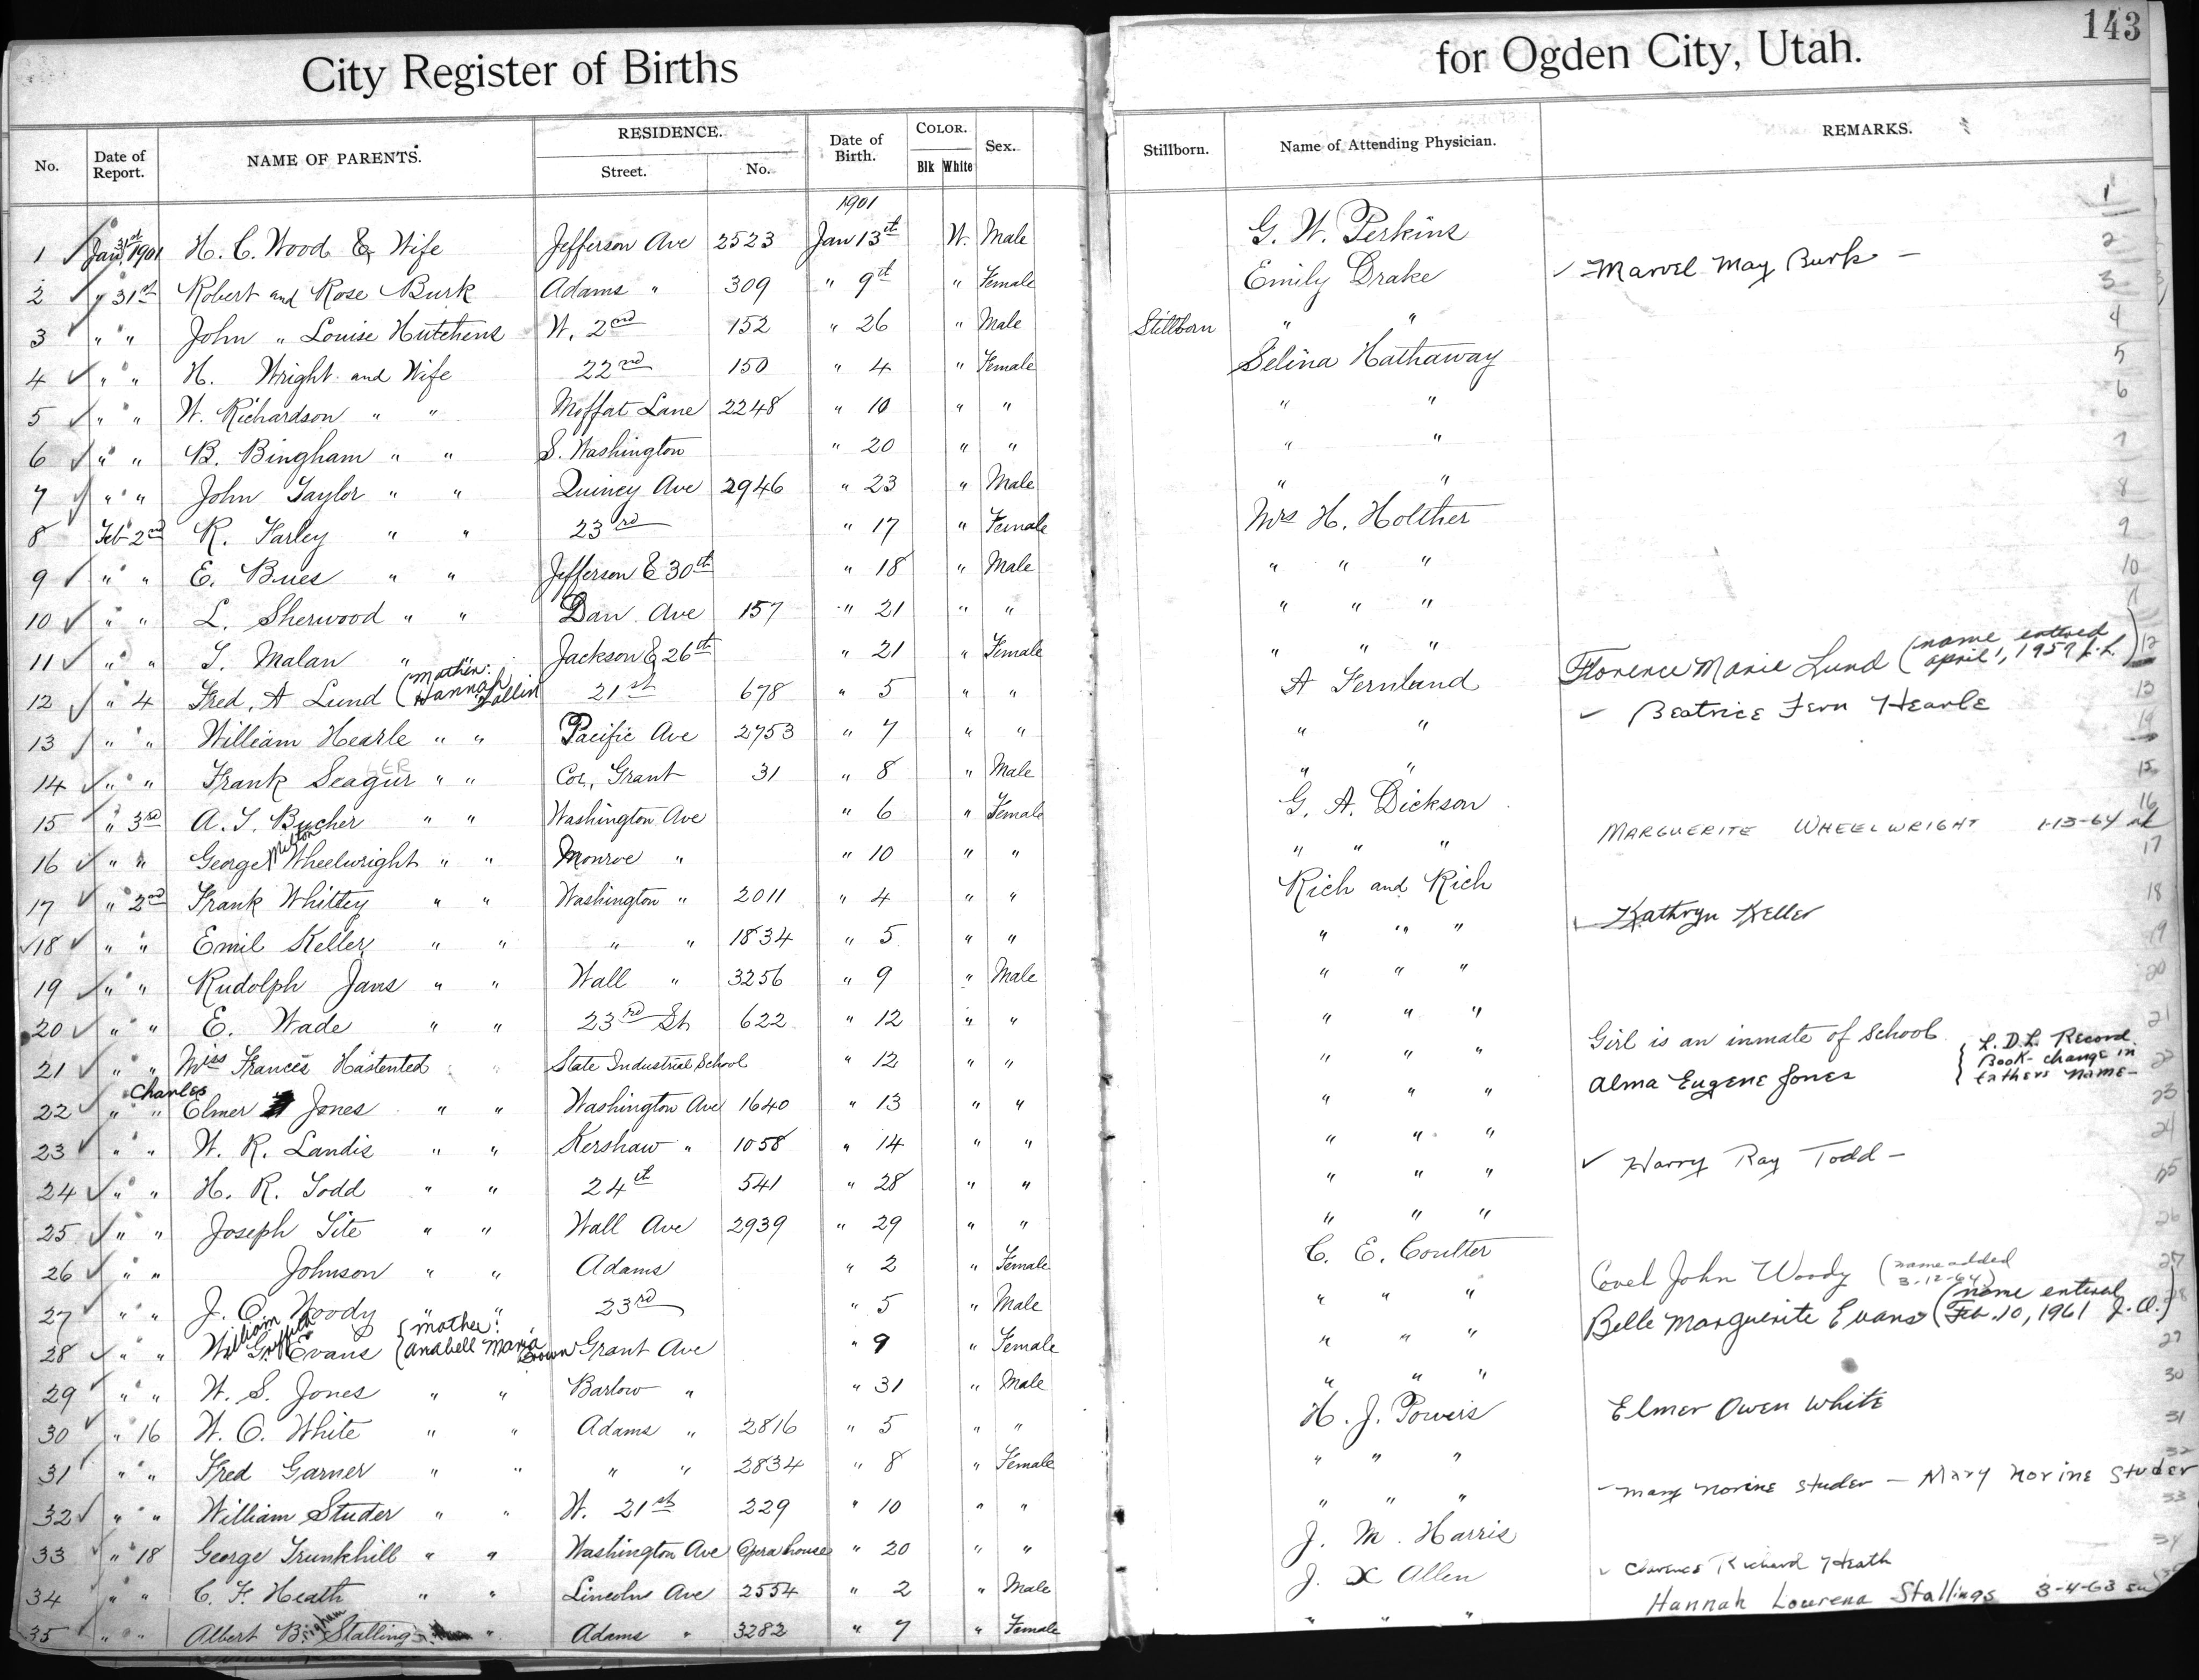 City Register of Births for Ogden City, Utah. 143
No. Date of Report. NAME OF PARENTS. RESIDENCE. Street. No. Date of Birth. COLOR. Blk White Sex. Stillborn. Name of Attending Physician. REMARKS.
1901
1 Jan 31st 1901 H. C. Wood & Wife Jefferson Ave 2523 Jan 13th W. Male G. W. Perkins 1
2 " 31st Robert and Rose Burk Adams " 309 " 9th " Female Emily Drake Marvel May Burk - 2
3 " " John " Louise Hutchens W. 2nd 152 " 26 " Male Stillborn " " 3
4 " " H. Wright and Wife 22nd 150 " 4 " Female Selina Hathaway 4
5 " " W. Richardson " " Moffat Lane 2248 " 10 " " " " 5
6 " " B. Bingham " " S. Washington " 20 " " " " 6
7 " " John Taylor " " Quincy Ave 2946 " 23 " Male " " 7
8 Feb 2nd R. Farley " " 23rd " 17 " Female Mrs H. Holther 8
9 " " E. Bues " " Jefferson & 30th " 18 " Male " " " 9
10 " " L. Sherwood " " Dan. Ave 157 " 21 " " " " " 10
11 " " T. Malan " " Jackson & 26th " 21 " Female " " " 11
12 " 4 Fred. A Lund (Mother: Hannah Tallin 21st 678 " 5 " " A Fernland Florence Marie Lund (name entered april 1, 1957 L.L.) 12
13 " " William Hearle " " Pacific Ave 2753 " 7 " " " " Beatrice Fern Hearle 13
14 " " Frank Seagur " " Cor. Grant 31 " 8 " Male " " 14
15 " 3rd A. T. Bucher " " Washington Ave " 6 " Female G. A. Dickson 15
16 " " George Milton Wheelwright " " Monroe " " 10 " " " " " MARGUERITE WHEELWRIGHT 1-13-64 16
17 " 2nd Frank Whittey " " Washington " 2011 " 4 " " Rich and Rich 17
18 " " Emil Keller " " " " 1834 " 5 " " " " " Kathryn Keller 18
19 " " Rudolph Jans " " Wall " 3256 " 9 " Male " " " 19
20 " " E. Wade " " 23rd St 622 " 12 " " " " " 20
21 " " Miss Frances Hastented " State Industrial School " 12 " " " " " Girl is an inmate of School 21
22 " " Charles Elmer Jones " " Washington Ave 1640 " 13 " " " " " Alma Eugene Jones { L.D.S. Record Book - change in fathers name - 22
23 " " W. R. Landis " " Kershaw " 1058 " 14 " " " " " 23
24 " " H. R. Todd " " 24th 541 " 28 " " " " " Harry Ray Todd - 24
25 " " Joseph Tite " " Wall Ave 2939 " 29 " " " " " 25
26 " " Johnson " " Adams " 2 " Female C. E. Coulter 26
27 " " J. O. Woody " " 23rd " 5 " Male " " " Covel John Woody (name added 3-12-64) 27
28 " " William Griffith Evans {mother: Anabell Maria Brown Grant Ave " 9 " Female " " " Belle Marguerite Evans (name entered Feb. 10, 1961 J.A.) 28
29 " " W. S. Jones " " Barlow " " 31 " Male " " " 29
30 " 16 W. O. White " " Adams " 2816 " 5 " " H. J. Powers Elmer Owen White 30
31 " " Fred Garner " " " " 2834 " 8 " Female " " " 31
32 " " William Studer " " W. 21st 229 " 10 " " " " " Mary Norine Studer - Mary Norine Studer 32
33 " 18 George Trunkhill " " Washington Ave Opera house " 20 " " J. M. Harris 33
34 " " C. F. Heath " " Lincoln Ave 2554 " 2 " Male J. X Allen Clarence Richard Heath 34
35 " " Albert Bingham Stallings " Adams " 3282 " 7 " Female " " " Hannah Lourena Stallings 3-4-63